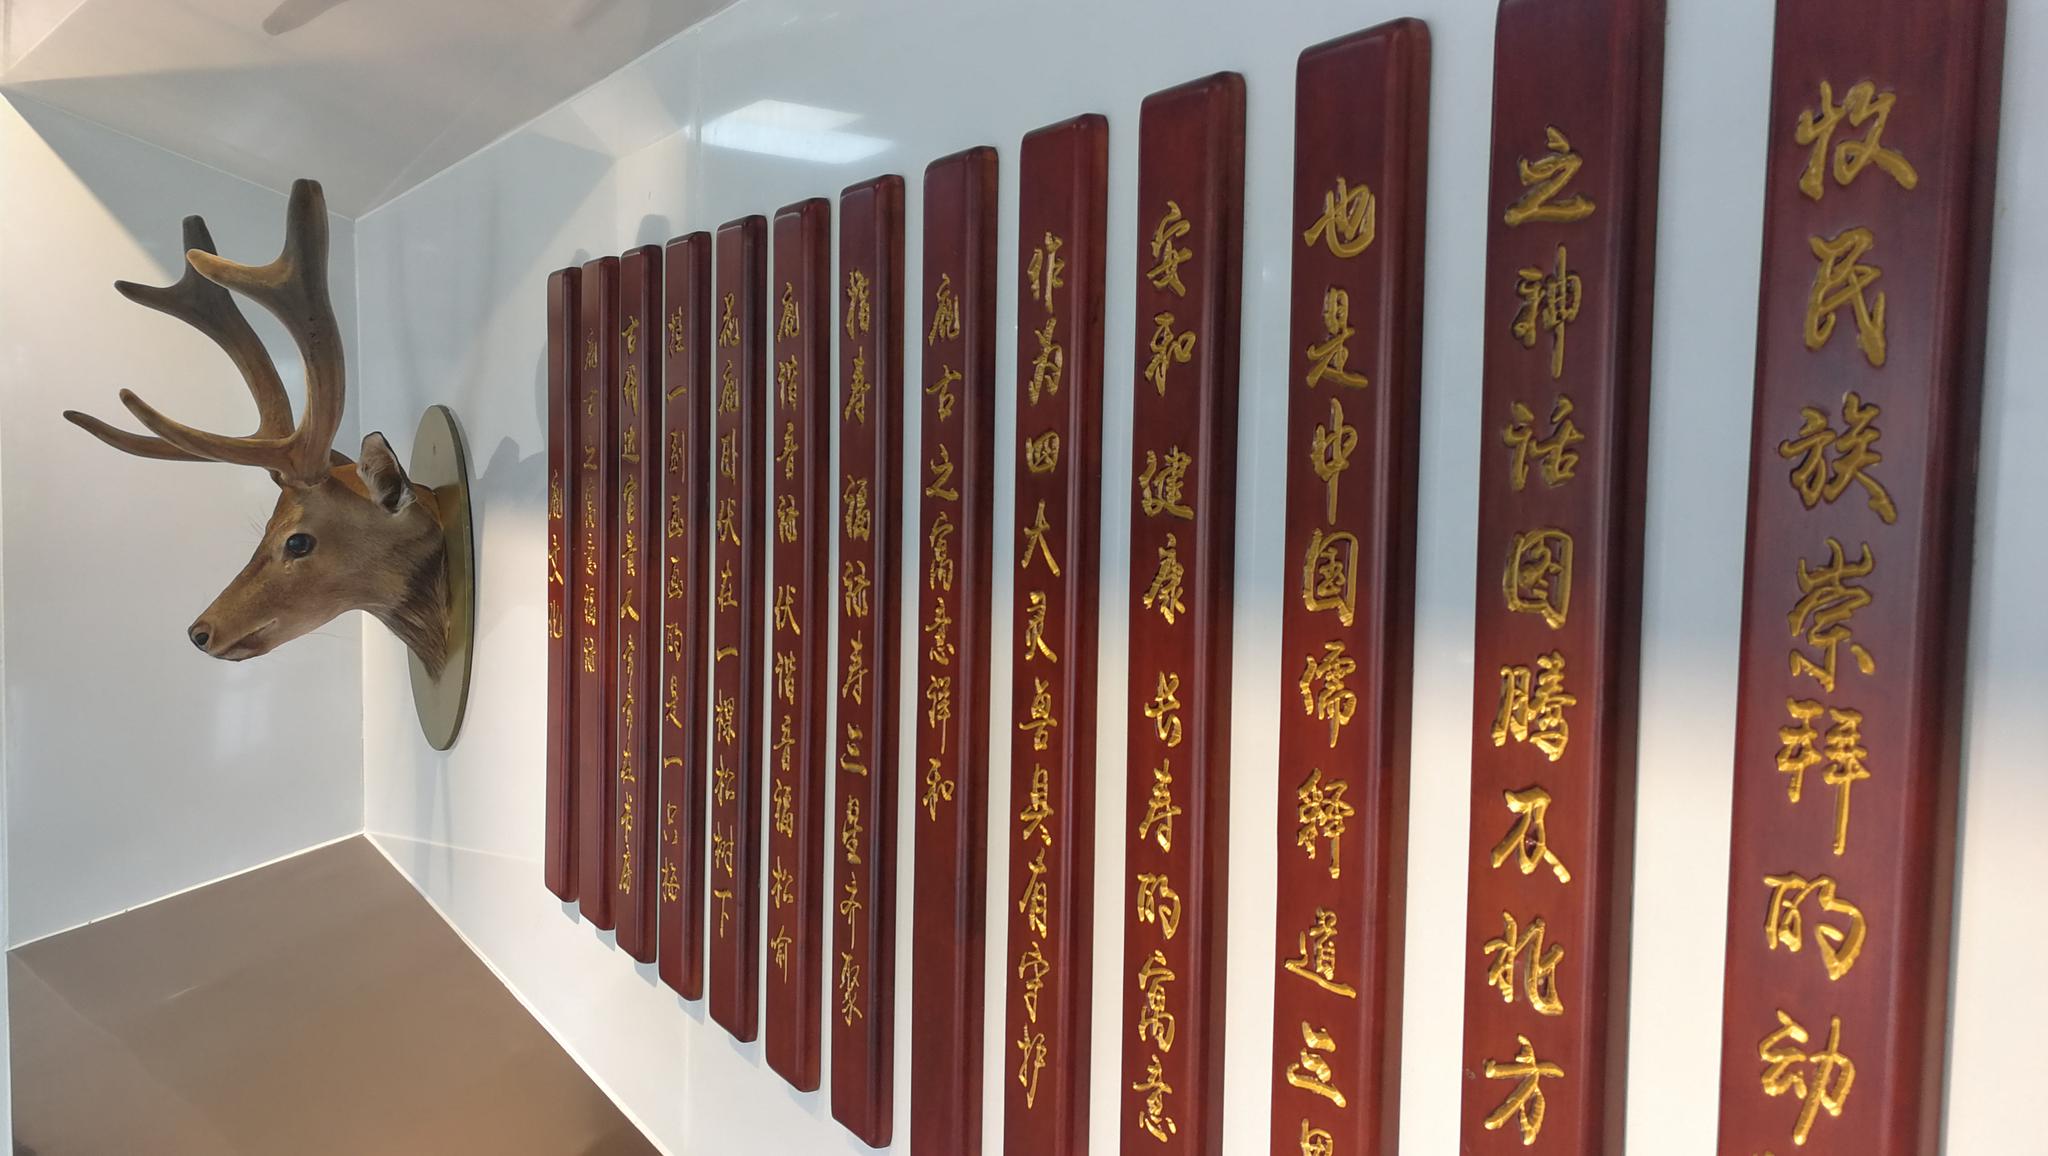 鹿文化
鹿古之寓意福禄
古代达官贵人常常在书房
挂一副画画的是一只梅
花鹿卧伏在一棵松树下
鹿谐音禄 伏谐音福松喻
指寿 福禄寿三星齐聚
鹿古之寓意祥和
作为四大灵兽具有守护
安和 健康 长寿的寓意
也是中国儒释道三
之神话图腾及北方
牧民族崇拜的动